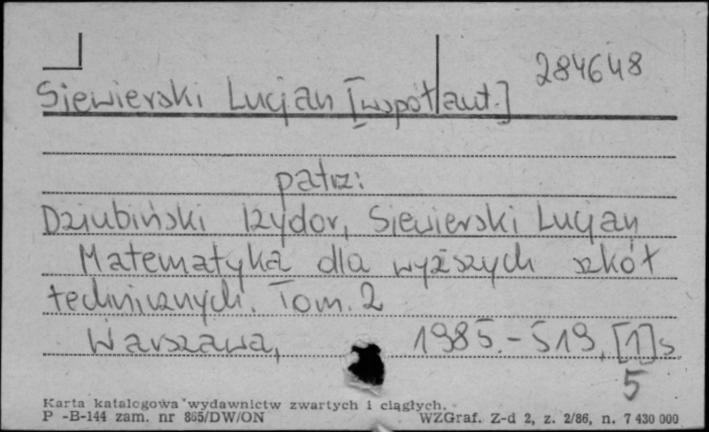 284648
Siewierski Lucjan [współaut.]
patrz:
Dziubiński Izydor, Siewierski Lucjan
Matematyka dla wyższych szkół
technicznych. Tom. 2
Warszawa, 1985. - 519, [1] s
5
Karta katalogowa wydawnictw zwartych i ciągłych.
P -B-144 zam. nr 865/DW/ON WZGraf. Z-d 2, z. 2/86, n. 7 430 000